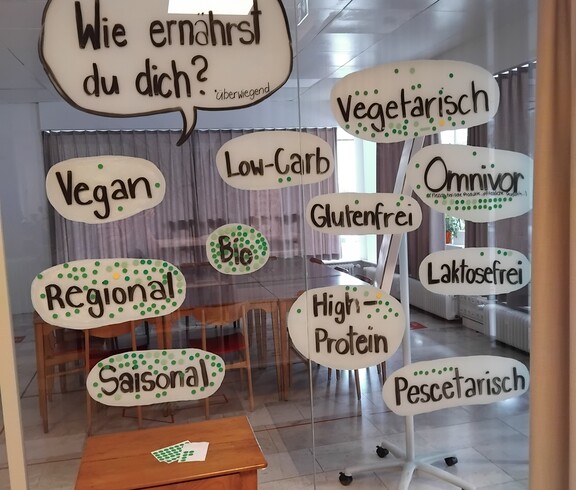 Wie ernährst
du dich?
*überwiegend
Vegetarisch
Low-Carb
Vegan
Omnivor
Glutenfrei
Bio
Laktosefrei
Regional
High-
Protein
Saisonal
Pescetarisch